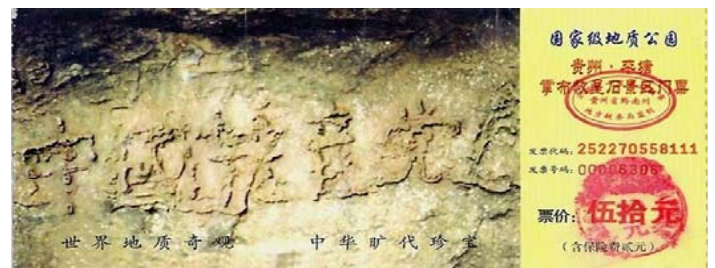 中國共產党
世界地质奇观 中华旷代珍宝
国家级地质公园
贵州·平塘
掌布救星石景区门票
贵州省黔南州
地方税务局监制
发票代码: 252270558111
发票号码: 00006306
票价: 伍拾元
(含保险费贰元)